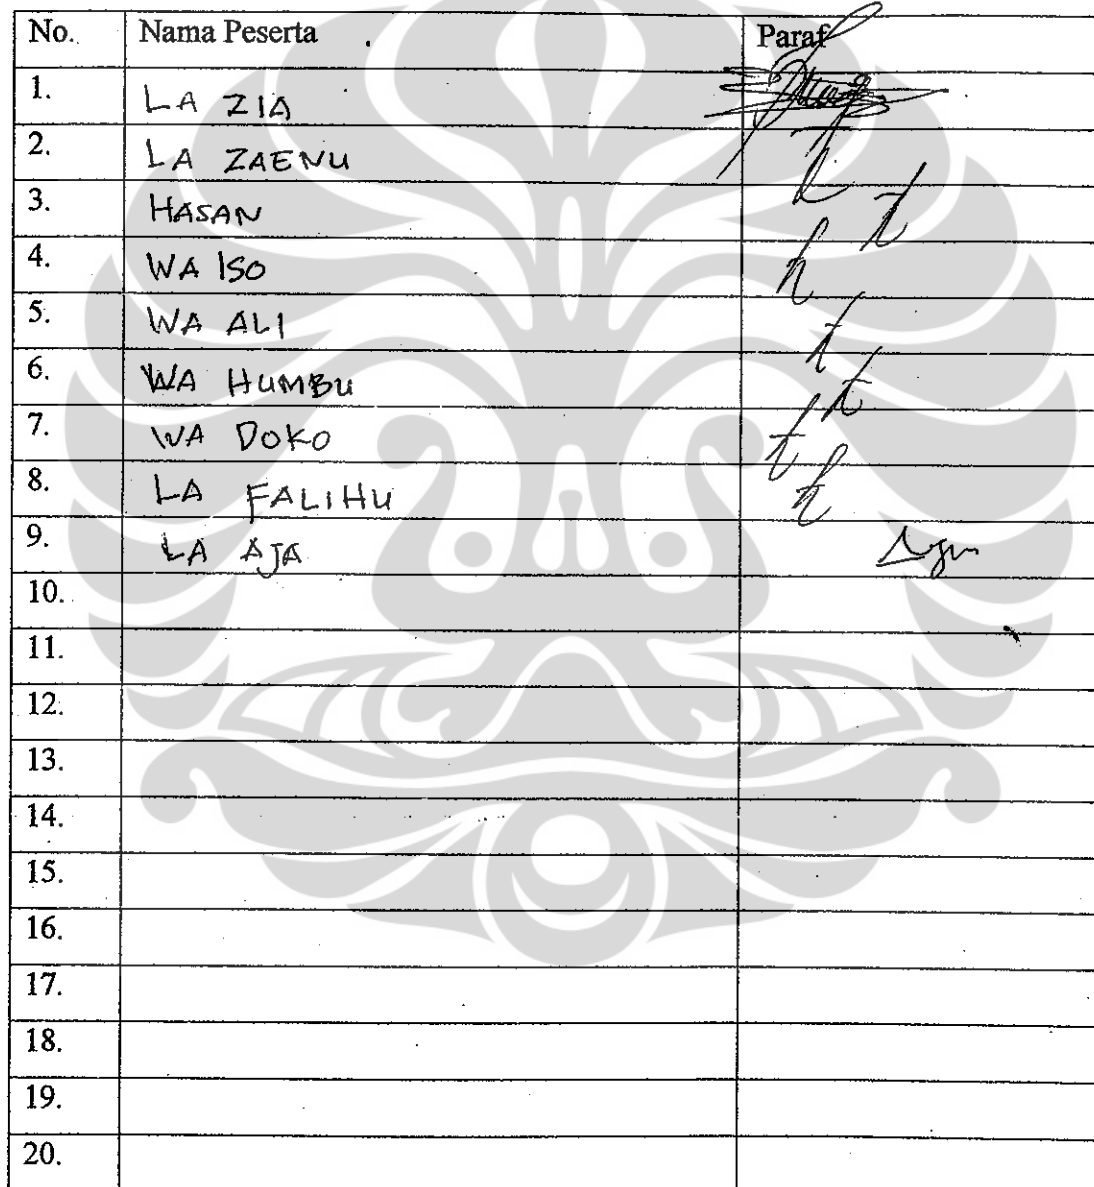 No. Nama Peserta Paraf
1. LA ZIA
2. LA ZAENU
3. HASAN
4. WA ISO
5. WA ALI
6. WA HUMBU
7. WA DOKO
8. LA FALIHU
9. LA AJA
10.
11.
12.
13.
14.
15.
16.
17.
18.
19.
20.